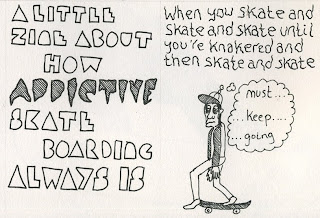 A LITTLE
ZINE ABOUT
HOW
ADDICTIVE
SKATE
BOARDING
ALWAYS IS
When you skate and
skate and skate until
you're knakered and
then skate and skate
must....
...keep....
...going